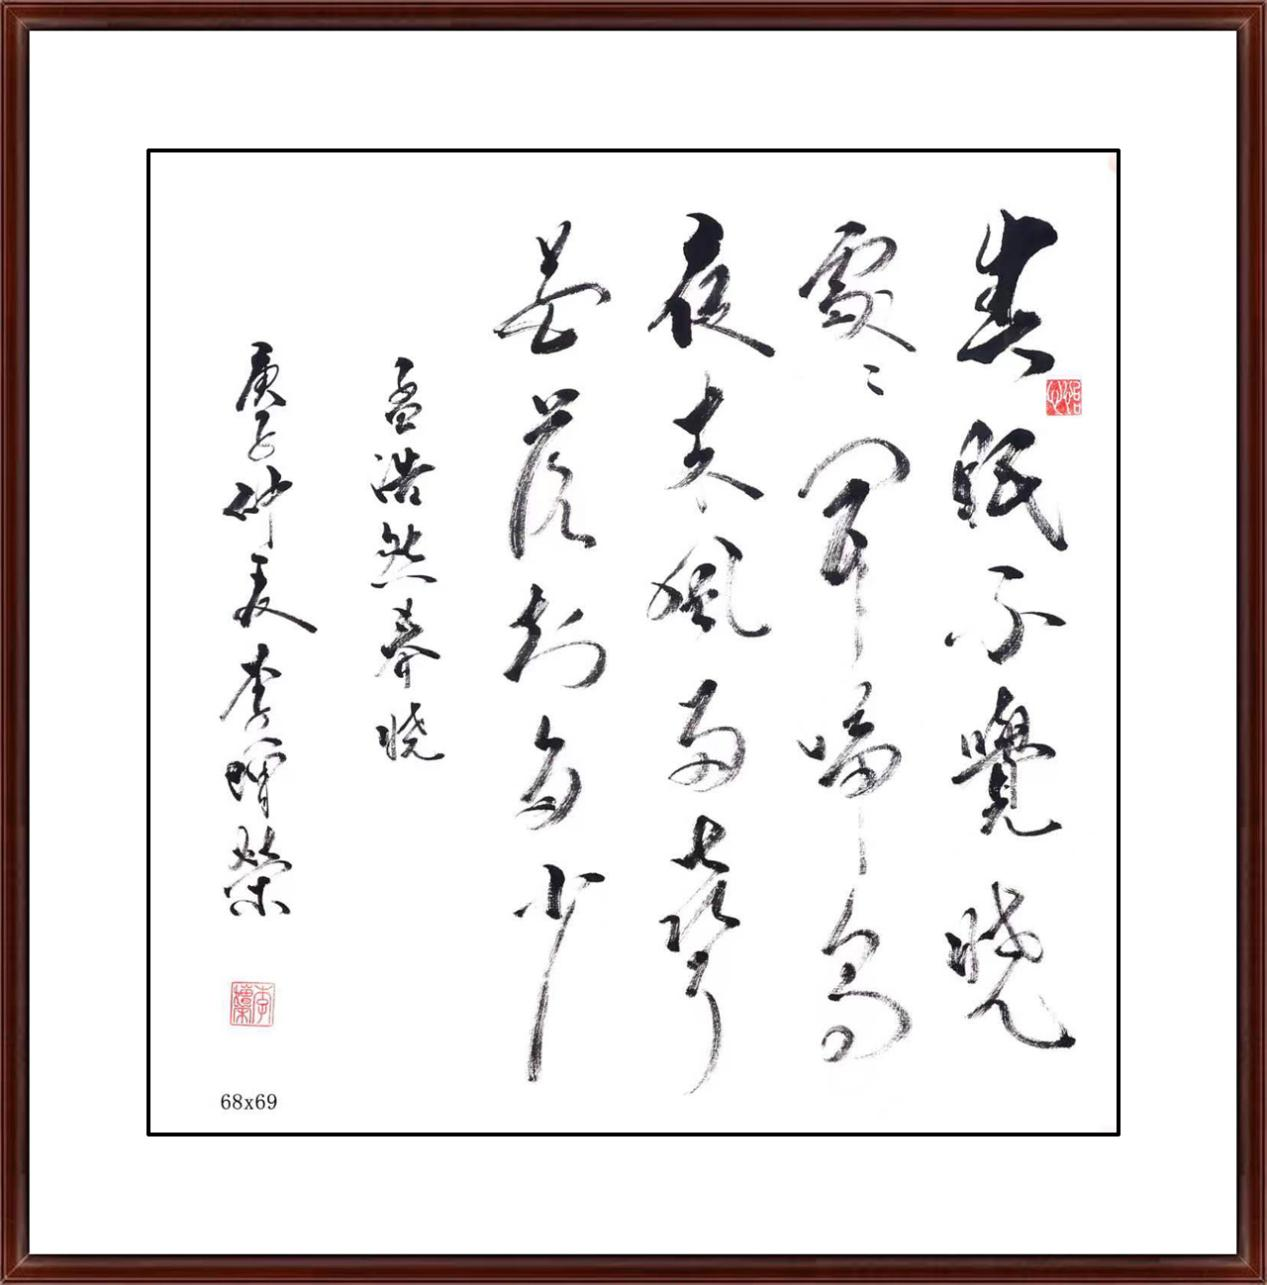 春眠不覺曉
處〻聞啼鳥
夜来風雨聲
花落知多少
孟浩然春曉
庚子仲夏李增榮
68x69